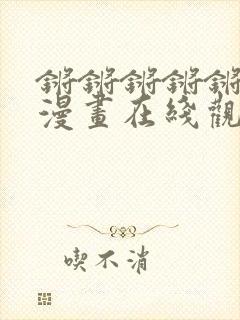 锵锵锵锵锵
漫畫在綫觀
喫不消